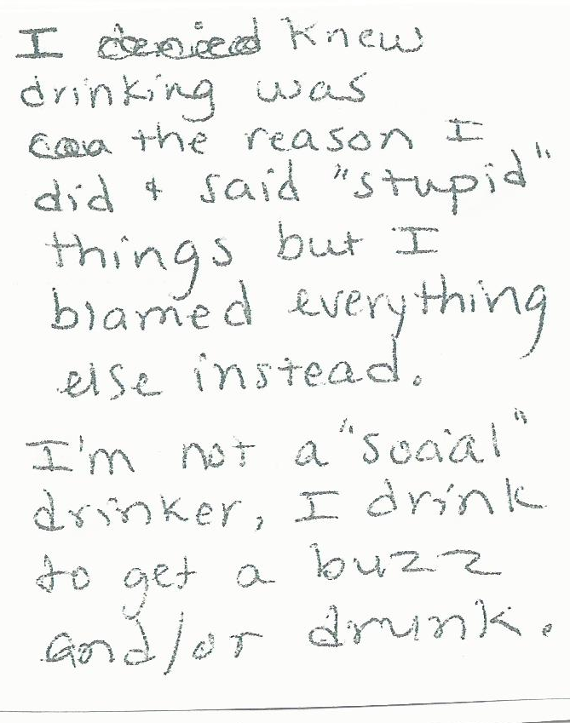 I denied knew
drinking was
the reason I
did + said "stupid"
things but I
blamed everything
else instead.
I'm not a "social"
drinker, I drink
to get a buzz
and/or drunk.